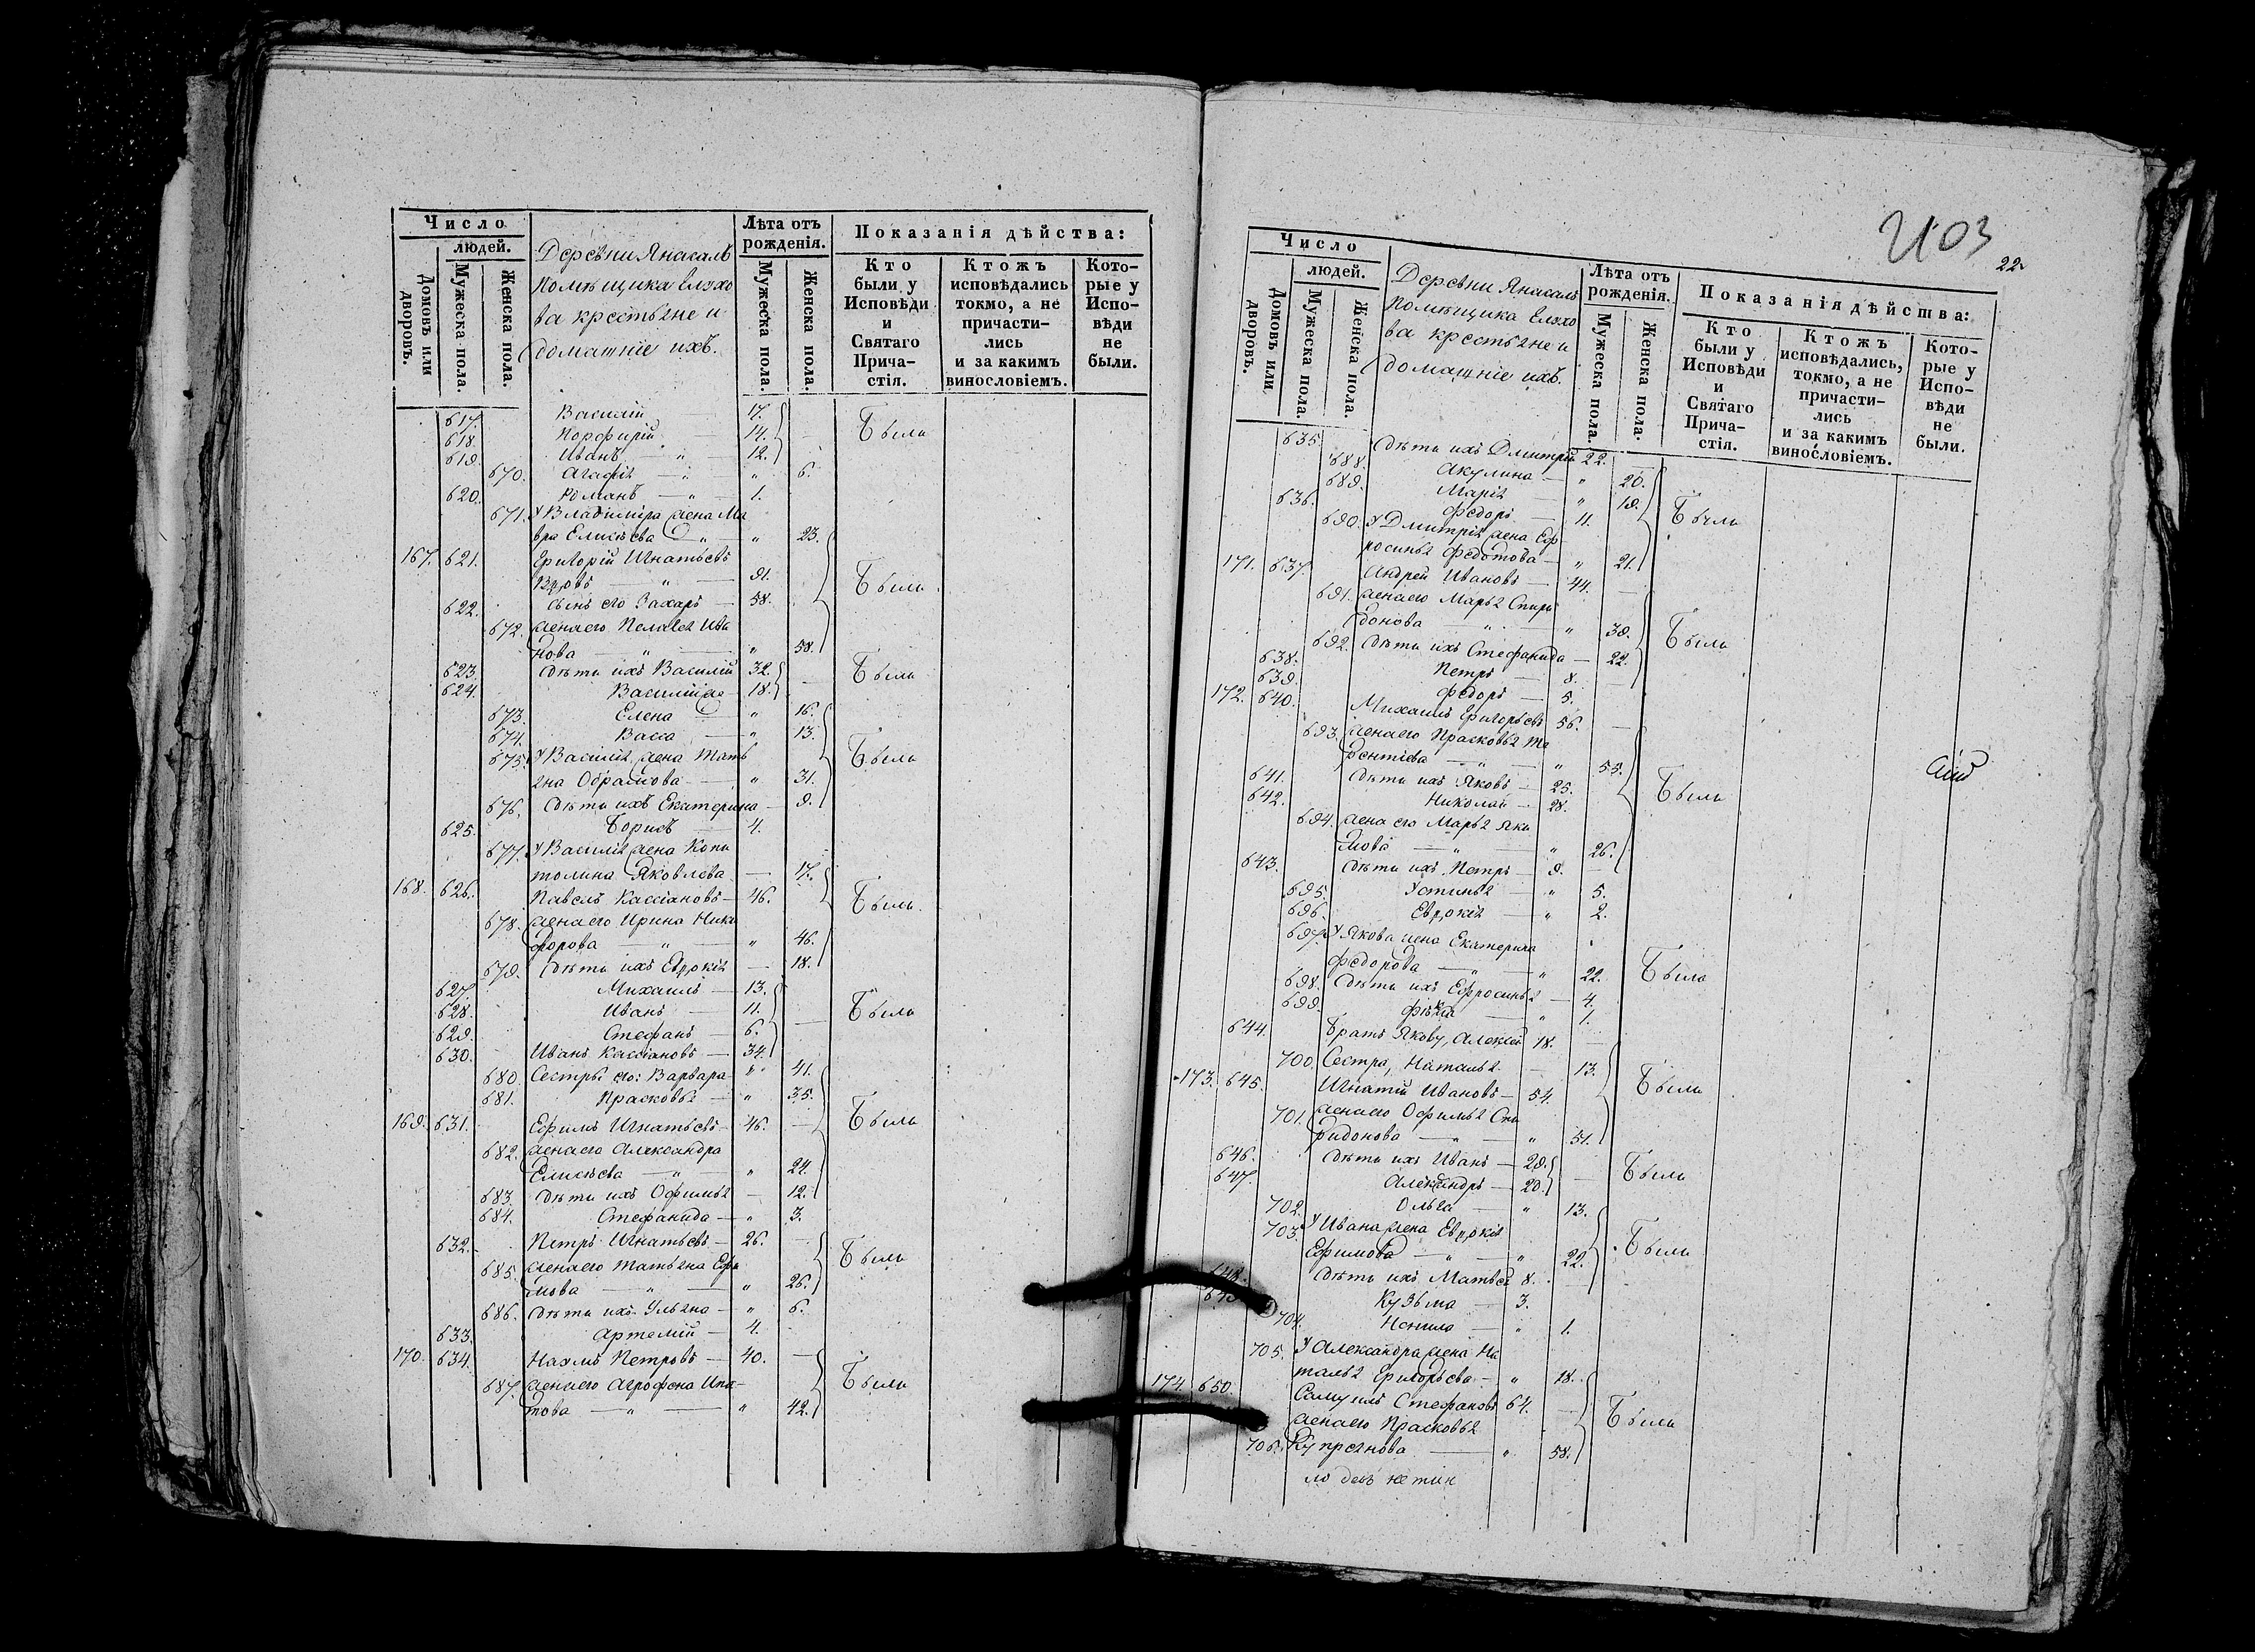 Число
людей.
Домовъ или дворовъ.
Мужеска пола.
Женска пола.
Деревни Янасалъ
помѣщика Елэхо
ва крестьяне и
домашніе ихъ.
Лѣта отъ
рожденія.
Мужеска пола.
Женска пола.
Показанія дѣйства:
Кто
были у
Исповѣди
и
Святаго
Прича-
стія.
Ктожъ
исповѣдались
токмо, а не
причасти-
лись
и за какимъ
винословіемъ.
Кото-
рые у
Испо-
вѣди
не
были.
617. Василій 17.
618. Порфирій — 14. Были
619. Иванъ — " — 12.
670. Агафія — " — " 6.
620. Романъ — " — 1.
671. У Владиміра жена Ма
вра Елисѣева — " — " 23.
167. 621. Григорій Игнатьевъ
— " — 91. Были
622. Сынъ его Захаръ — 58.
672. жена его Пелагея Ива
нова — " — " 58.
623. Дѣти ихъ Василій 32. Были
624. Василій же — 18.
673. Елена — " 16.
674. Васса — " 13.
675. У Василія жена Тать Были
яна Обрамова — " 31.
676. Дѣти ихъ Екатерина — 9.
625. Борисъ — 4.
677. У Василія жена Капи
толина Яковлева — 17.
168. 626. Павелъ Кассіановъ — 46. Были
678. жена его Ирина Ники
форова — " — " 46.
679. Дѣти ихъ Евдокія — 18.
627. Михаилъ — 13.
628. Иванъ — 11. Были
629. Стефанъ — 6.
630. Иванъ Кассіановъ — 34.
680. Сестры его: Варвара " 41.
681. Прасковья — " 35.
169. 631. Ефимъ Игнатьевъ — 46. — Были
682. жена его Александра
Елисѣева — " — " 24.
683. Дѣти ихъ Офимья — 12.
684. Стефанида — " 3.
632. Петръ Игнатьевъ — 26. — Были
685. жена его Татьяна Ефи
мова — " — " 26.
686. Дѣти ихъ Ульяна — " 6.
633. Артемій — 4.
170. 634. Наумъ Петровъ — 40. — Были
687. жена его Агрофена Ипа-
това — " — " 42.
22.
Число
людей.
Домовъ или дворовъ.
Мужеска пола.
Женска пола.
Деревни Янасалъ
помѣщика Елэхо
ва крестьяне и
домашніе ихъ.
Лѣта отъ
рожденія.
Мужеска пола.
Женска пола.
Показанія дѣйства:
Кто
были у
Исповѣди
и
Святаго
Прича-
стія.
Ктожъ
исповѣдались,
токмо, а не
причасти-
лись
и за какимъ
винословіемъ.
Кото-
рые у
Испо-
вѣди
не
были.
635. Дѣти ихъ Дмитрій 22.
688. Акулина — " 20.
689. Марія " 19. Были
636. Федоръ — 11.
690. У Дмитрія жена Еф
росинья Федотова — " 21.
171. 637. Андрей Ивановъ — 44. —
691. жена его Марья Спири
донова — " — " 39. Были
692. Дѣти ихъ Стефанида — 22.
638. Петръ — 8.
639. Федоръ — 5.
172. 640. Михаилъ Григорьевъ 56. —
693. жена его Прасковья Те
рентіева — " — " 55.
641. Дѣти ихъ Яковъ — 25. Были
642. Николай — 28.
694. жена его Марья Яки
мова — " — " 26.
643. Дѣти ихъ Петръ — 9. —
695. Устинья — " 5.
696. Евдокія — " 2.
697. У Якова жена Екатерина
Федорова — " — " 22. Были
698. Дѣти ихъ Ефросинья — 4.
699. — " 1.
644. Братъ Якову, Алексій 18. —
700. Сестра, Наталья — 13. Были
173. 645. Игнатій Ивановъ — 54.
701. жена его Офимья Спи
ридонова — " — " 51.
646. Дѣти ихъ Иванъ — 29. — Были
647. Александръ — 20.
702. Ольга — " 13.
703. У Ивана жена Евдокія
Ефимова — " — " 22. Были
648. Дѣти ихъ Матвей 8.
649. Кузьма — 3.
704. Ненила — " 1.
705. У Александра жена На
талья Григорьева — " 18.
174. 650. Самуилъ Стефановъ 64. — Были
жена его Прасковья
706. Купреянова — " 58.